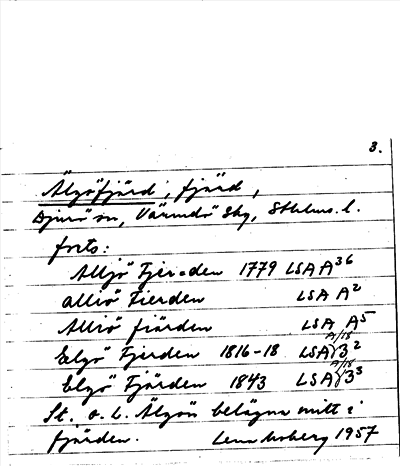 3.
Älgöfjärd, fjärd,
Djurö sn, Värmdö skg, Sthlms. l.
forts:
Alljö Fjer=den 1779 LSA A36
allió Fierden LSA A2
Allió fiärden LSA A5
Elgö Fjerden 1816-18 LSA A/18 32
Elgö Fjärden 1843 LSA A/18 33
St. o. L. Älgön belägna mitt i
fjärden. Lena Moberg 1957